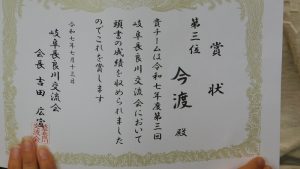 賞状
第三位
今渡 殿
貴チームは令和七年度第三回
岐阜長良川交流会において
頭書の成績を収められました
のでこれを賞します
令和七年七月十三日
岐阜長良川交流会
会長 吉田 広